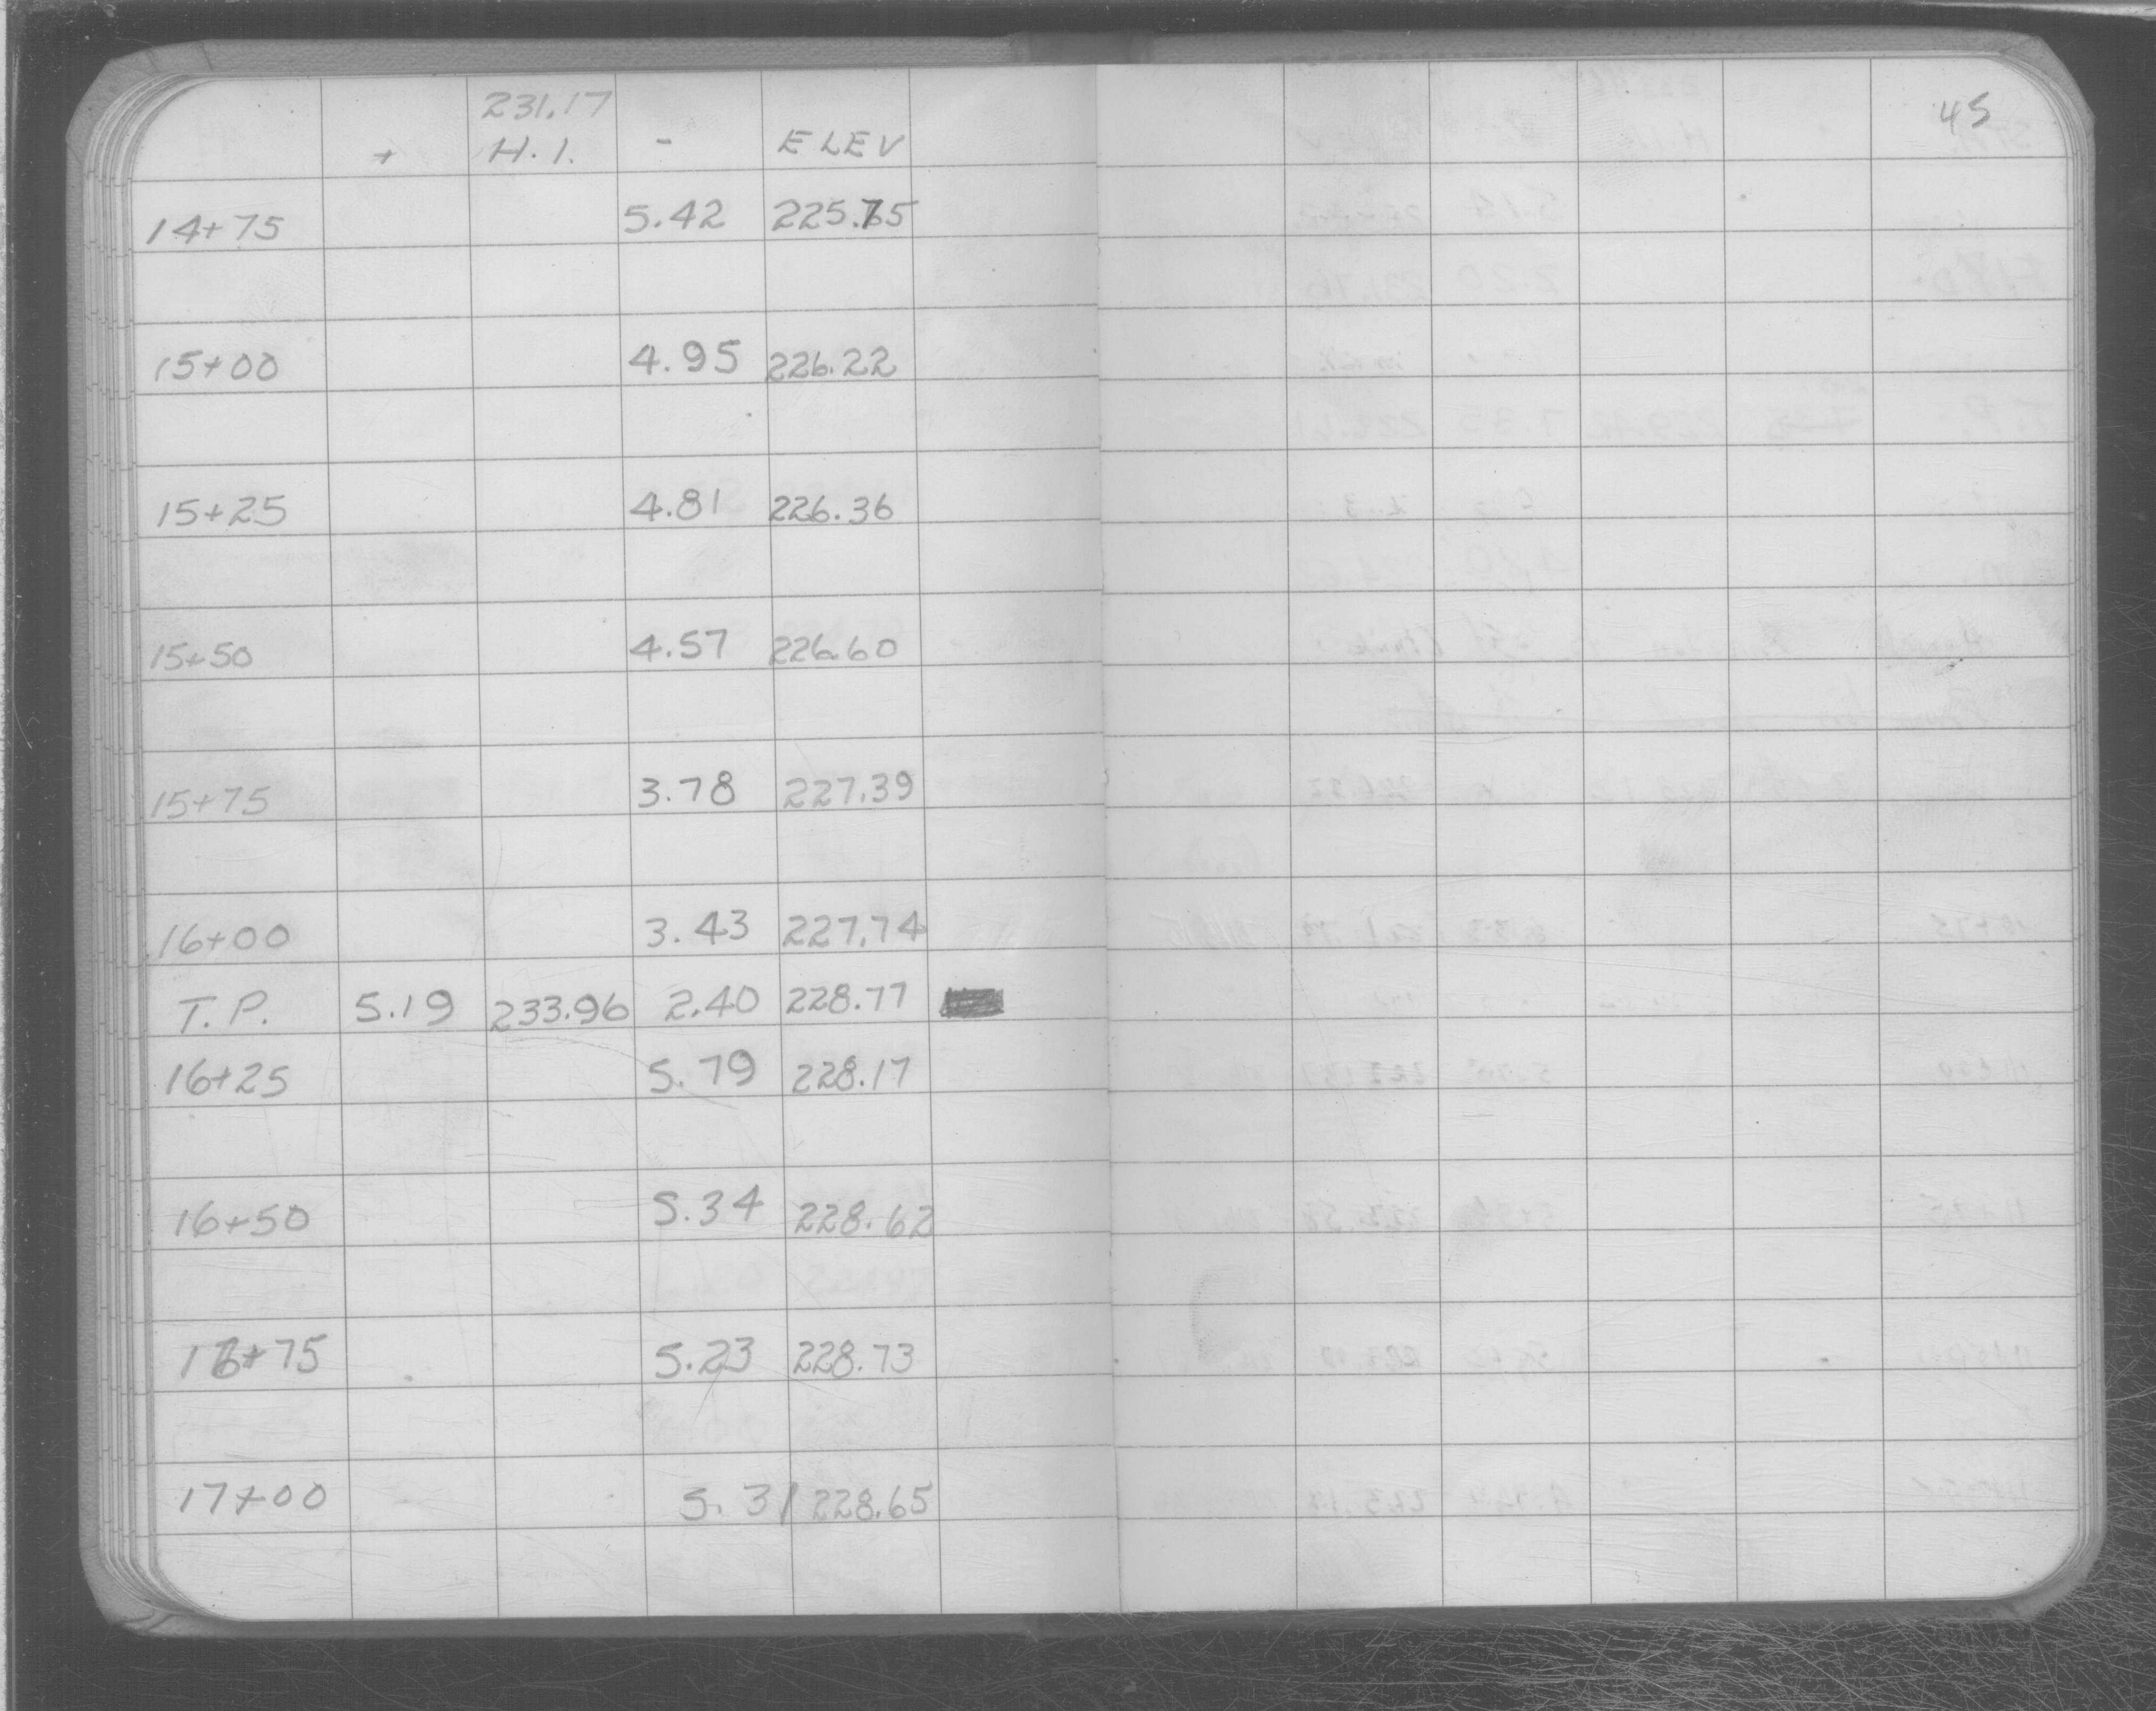 231.17 45
+ H.I. - ELEV
14+75 5.42 225.75
15+00 4.95 226.22
15+25 4.81 226.36
15+50 4.57 226.60
15+75 3.78 227.39
16+00 3.43 227.74
T.P. 5.19 233.96 2.40 228.77
16+25 5.79 228.17
16+50 5.34 228.62
16+75 5.23 228.73
17+00 5.31 228.65